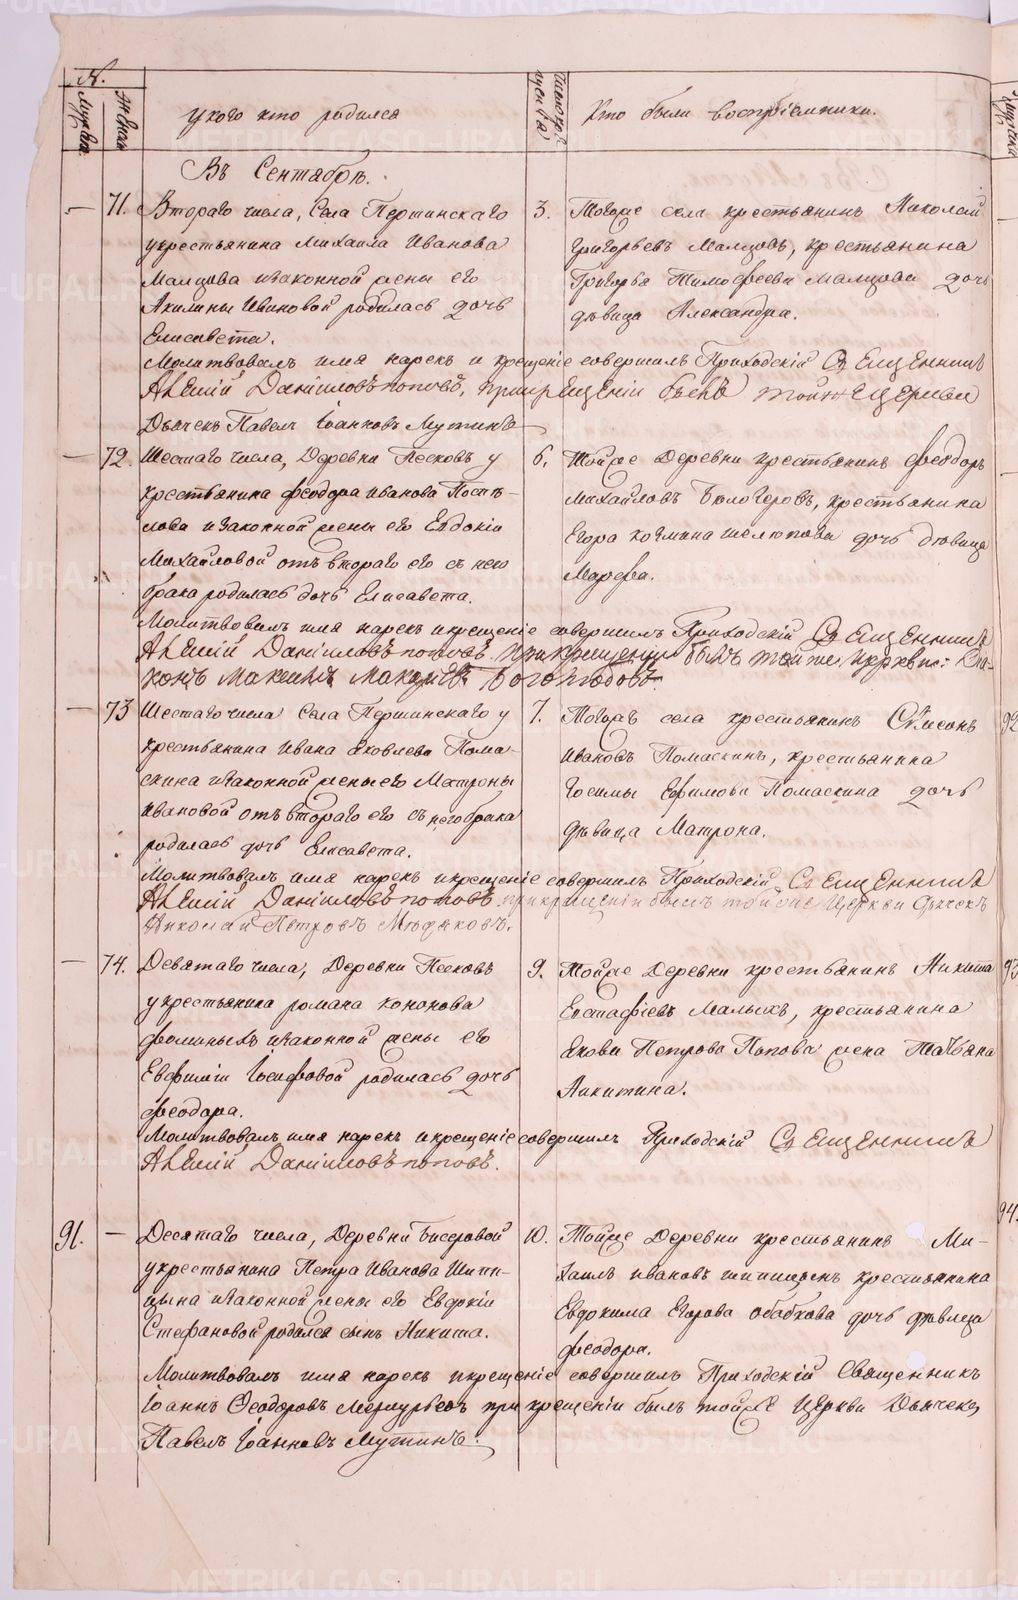 №.
Мужеска.
Женска
У кого кто родился
Число крещения
Кто были воспріемники.
Въ Сентябрѣ.
71. Втораго числа, Села Першинскаго
у крестьянина Михаила Иванова
Малцова и законной жены его
Акилины Ивановой родилась дочь
Елисавета.
3. Тогоже села крестьянинъ Николай
Григорьевъ Малцовъ, крестьянина
Григорья Тимофеева Малцова дочь
дѣвица Александра.
Молитвовалъ имя нарекъ и крещеніе совершилъ Приходскій Священникъ
Алексій Даніиловъ Поповъ, при крещеніи былъ тойже Церкви
Дьячекъ Павелъ Іоанновъ Мутинъ
72. Шестаго числа, Деревни Песковъ у
крестьянина Феодора Иванова
и законной жены его Евдокіи
Михайловой отъ втораго его съ нею
брака родилась дочь Елисавета.
6. Тойже Деревни крестьянинъ Феодоръ
Михайловъ Бѣлогеровъ, крестьянина
Егора дочь дѣвица
Марфа.
Молитвовалъ имя нарекъ и крещеніе совершилъ Приходскій Священникъ
Алексій Даніиловъ Поповъ. при крещеніи былъ тойже церкви Діа-
конъ Максимъ Боголюбовъ.
73 Шестаго числа Села Першинскаго у
крестьянина Ивана Яковлева Пома-
скина и законной жены его Матроны
Ивановой отъ втораго его съ нею брака
родилась дочь Елисавета.
7. Тогожъ села крестьянинъ Симеонъ
Ивановъ Помаскинъ, крестьянина
Ефимова Помаскина дочь
дѣвица Матрона.
Молитвовалъ имя нарекъ и крещеніе совершилъ Приходскій Священникъ
Алексій Даніиловъ Поповъ. при крещеніи былъ тойже Церкви дьячекъ
Николай Петровъ
74. Девятаго числа, Деревни Песковъ
у крестьянина Романа Кононова
Фоминыхъ и законной жены его
Евфиміи Іосифовой родилась дочь
Феодора.
9. Тойже Деревни крестьянинъ Никита
Евстафіевъ Малыхъ, крестьянина
Якова Петрова Попова жена Татьяна
Никитина.
Молитвовалъ имя нарекъ и крещеніе совершилъ Приходскій Священникъ
Алексій Даніиловъ Поповъ.
91. Десятаго числа, Деревни Бисеровой
у крестьянина Петра Иванова Шипи-
цына и законной жены его Евдокіи
Стефановой родился сынъ Никита.
10. Тойже Деревни крестьянинъ Ми-
хаилъ Ивановъ Шипицынъ крестьянина
Евдокима Егорова Обабкова дочь дѣвица
Феодора.
Молитвовалъ имя нарекъ и крещеніе совершилъ Приходскій Священникъ
Іоаннъ Ѳеодоровъ Меркурьевъ при крещеніи былъ тойже Церкви Дьячекъ
Павелъ Іоанновъ Мутинъ.
92
93
94.
METRIKI.GASO-URAL.RU